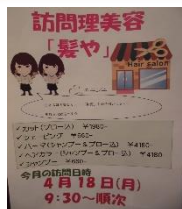 訪問理美容
「髪や」
Hair salon
✓カット(ブロー込) ￥1980-
✓シェービング ￥660-
✓パーマ(シャンプー&ブロー込) ￥4180-
✓ヘアカラー(シャンプー&ブロー込) ￥4180-
✓シャンプー ￥660-
今月の訪問日時
4月18日(月)
9:30～順次